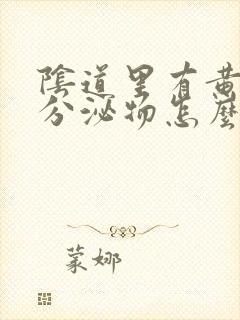 陰道里有黄
分泌物怎麼
蒙娜